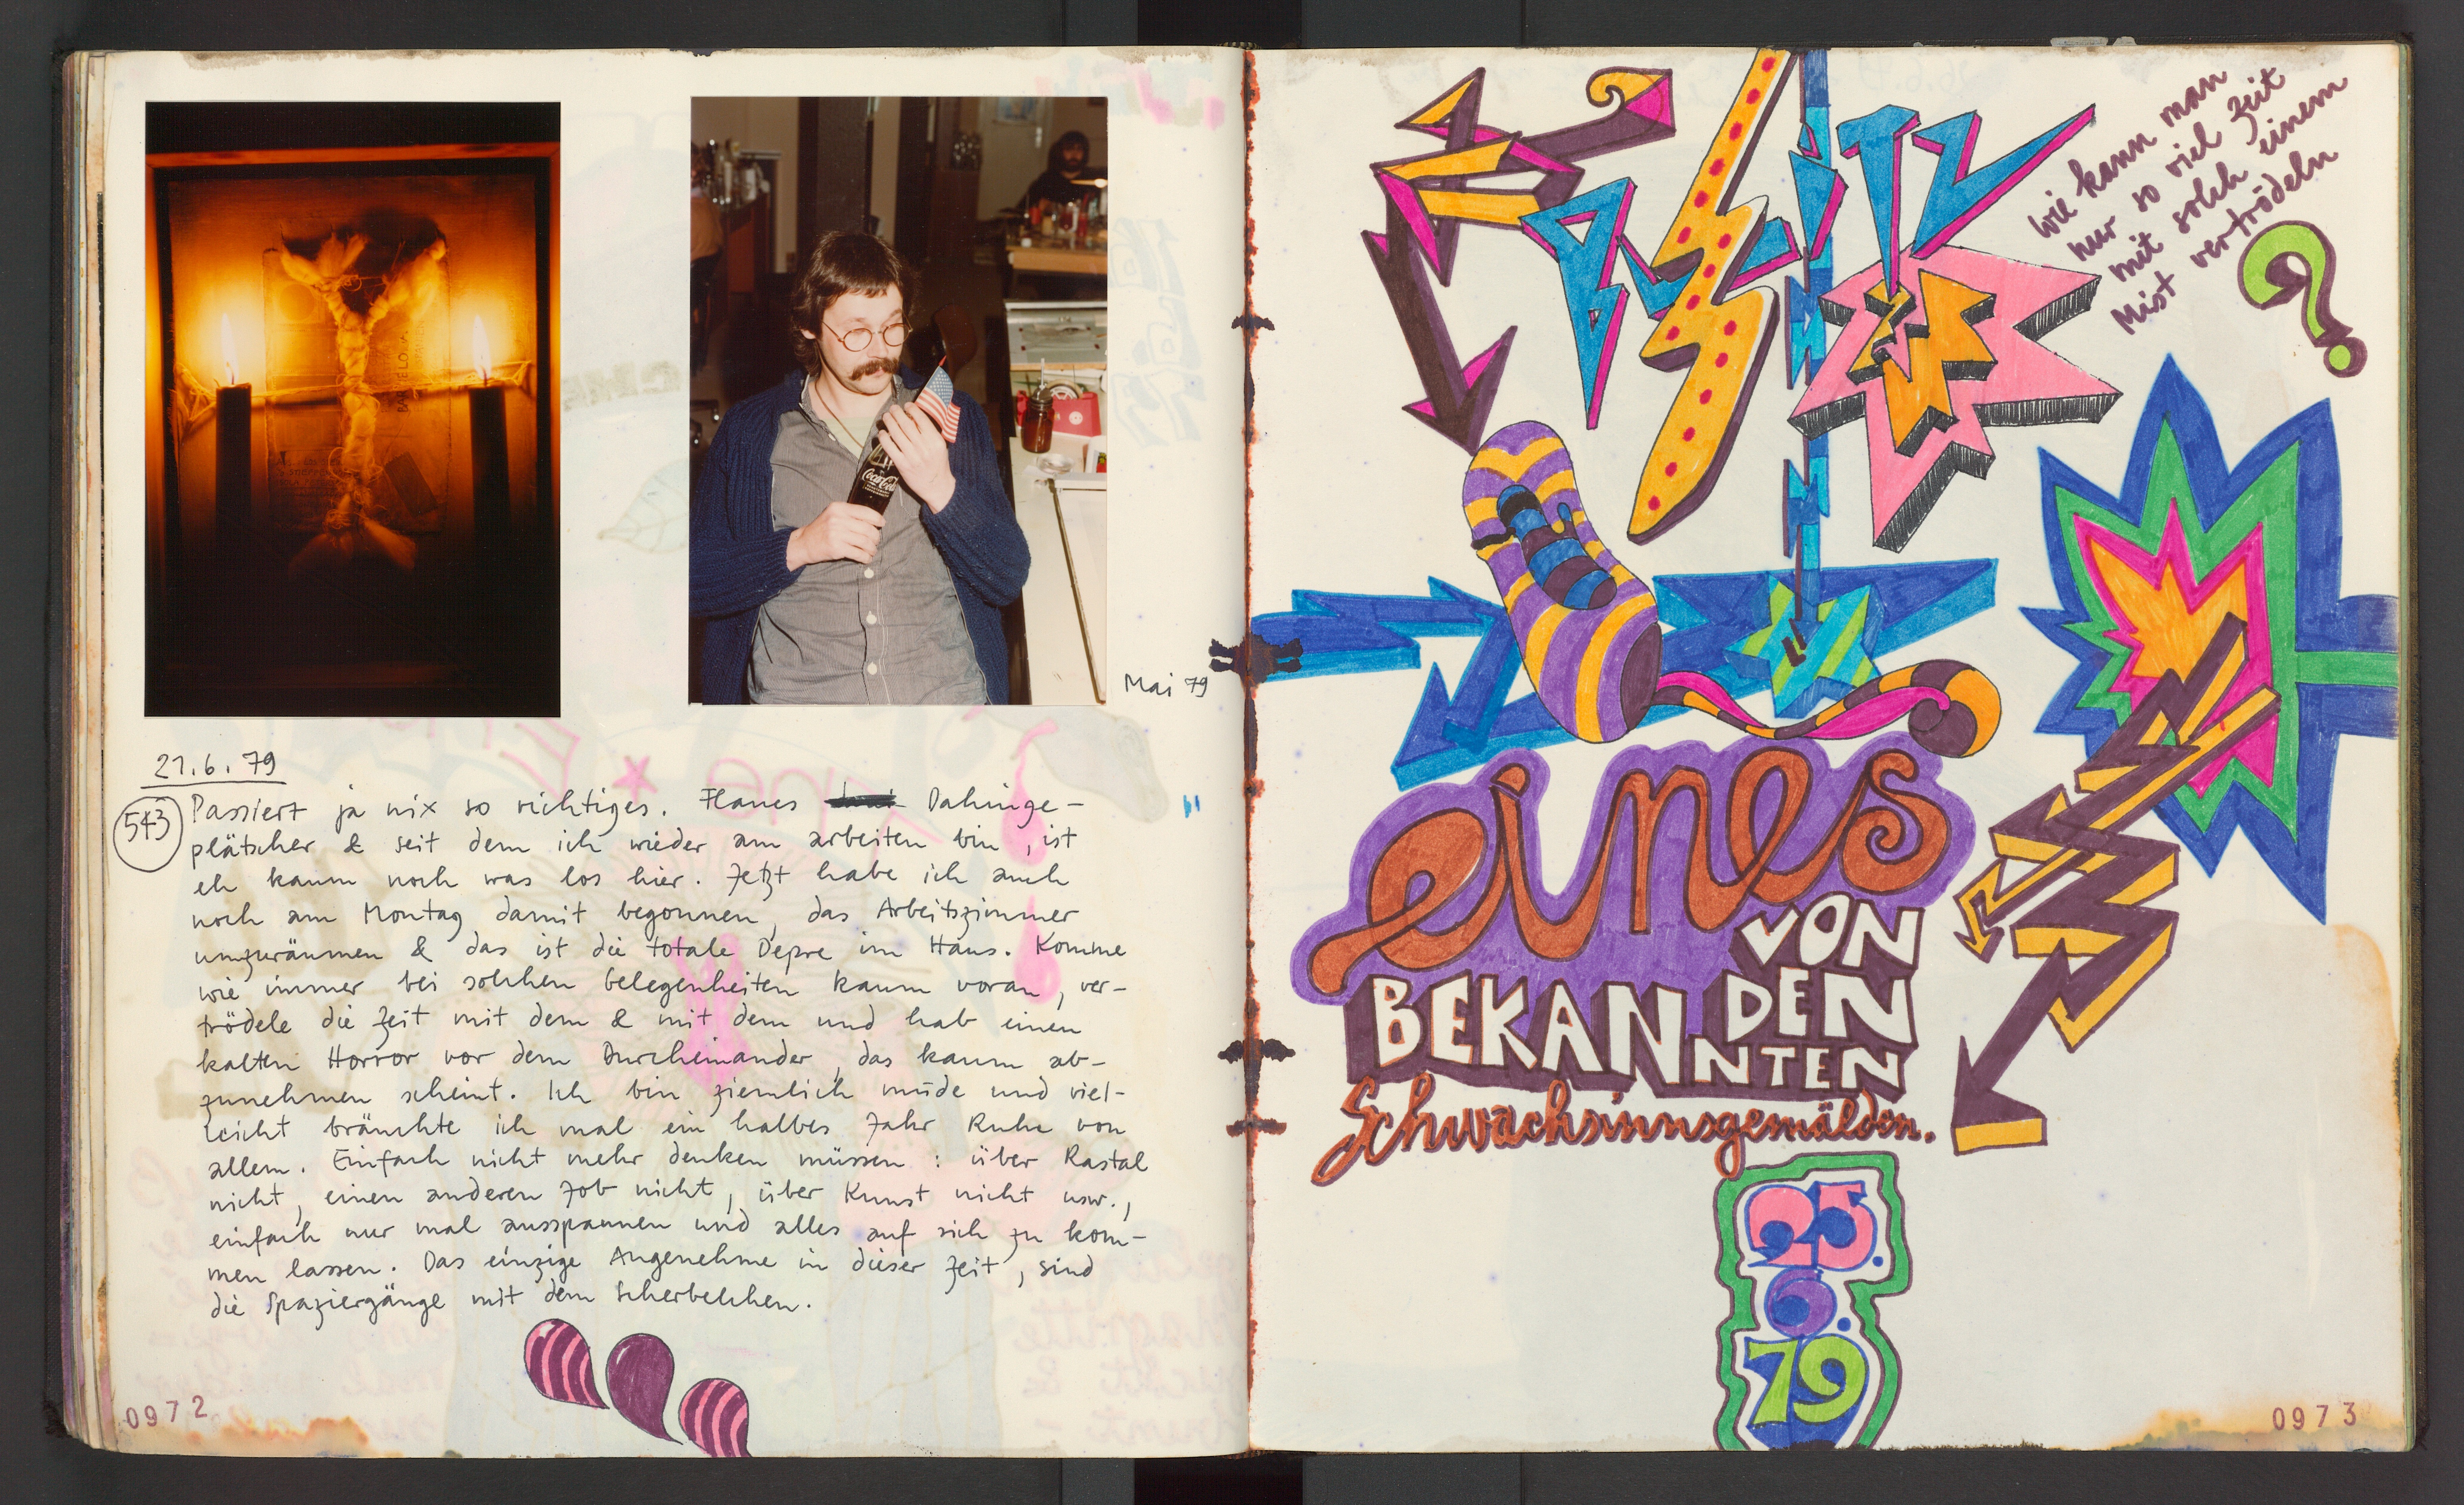 Mai 79
21.6.79
543
Passiert ja nix so richtiges. Flaues Dahinge-
plätscher & seit dem ich wieder am arbeiten bin, ist
eh kaum noch was los hier. Jetzt habe ich auch
noch am Montag damit begonnen, das Arbeitszimmer
umzuräumen & das ist die totale Depre im Haus. Komme
wie immer bei solchen belegenheiten kaum voran, ver-
trödele die Zeit mit dem & mit dem und hab einen
kalten Horror vor dem Durcheinander, das kaum ab-
zunehmen scheint. Ich bin ziemlich müde und viel-
leicht bräuchte ich mal ein halbes Jahr Ruhe von
allem. Einfach nicht mehr denken müssen: über Rastal
nicht, einen anderen Job nicht, über Kunst nicht usw.,
einfach nur mal ausspannen und alles auf sich zu kom-
men lassen. Das einzige Angenehme in dieser Zeit, sind
die Spaziergänge mit dem Scherbelchen.
0972
Coca-Cola
BLITZ
wie kann man
nur so viel Zeit
mit solch einem
Mist vertrödeln
?
eines
VON
DEN
BEKANNTEN
Schwachsinnsgemälden.
25.
6.
79
0973